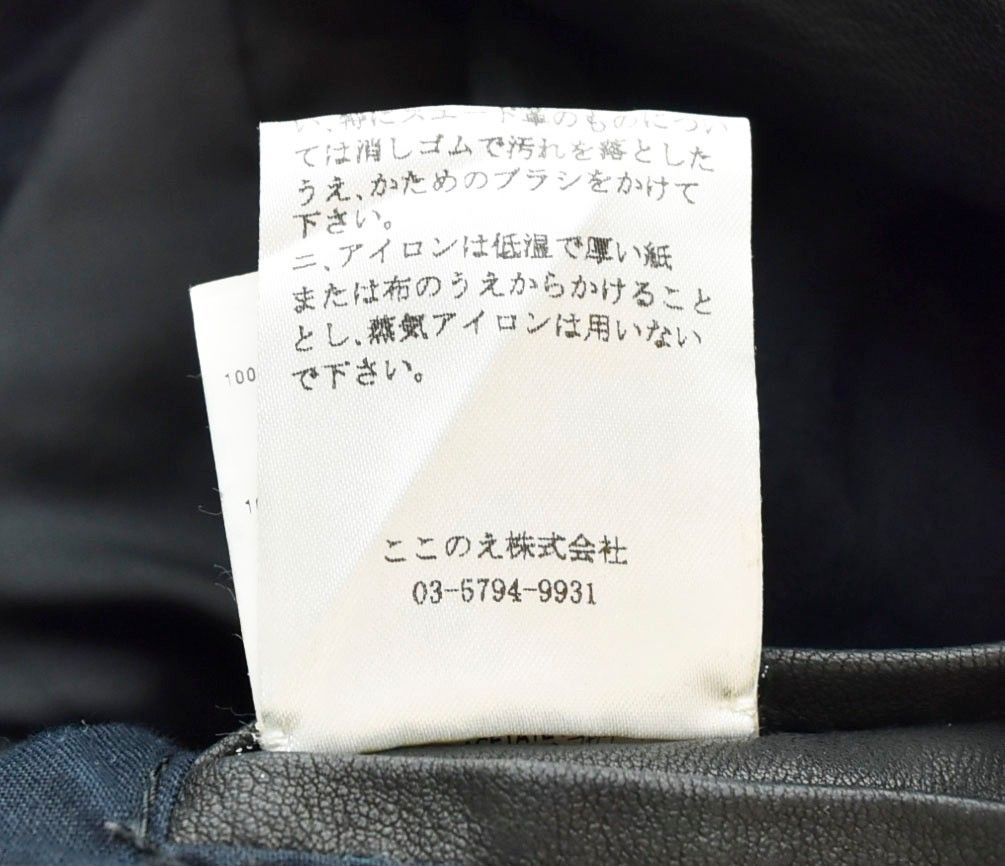 い、特にスエード革のものについ
ては消しゴムで汚れを落とした
うえ、かためのブラシをかけて
下さい。
ニ、アイロンは低湿で厚い紙
または布のうえからかけること
とし、蒸気アイロンは用いない
で下さい。
100
ここのえ株式会社
03-5794-9931